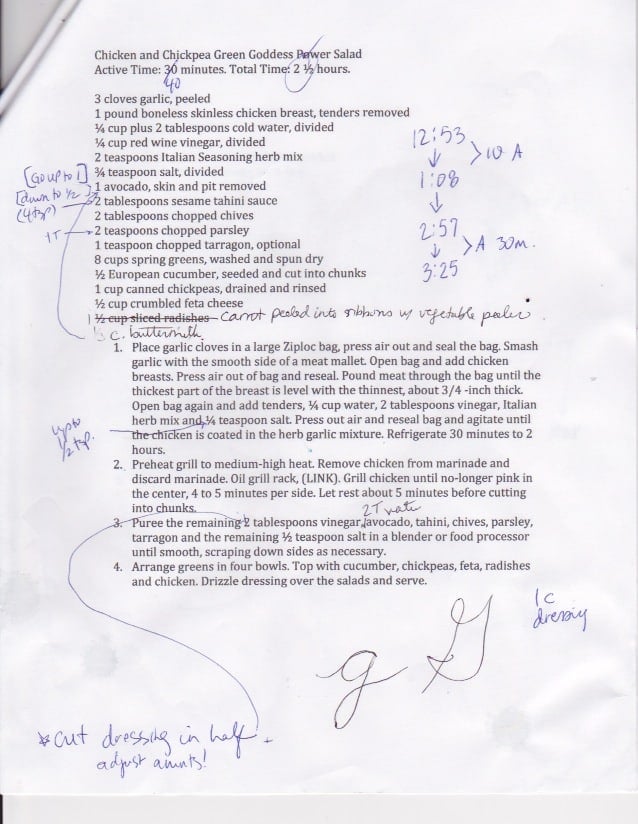 Chicken and Chickpea Green Goddess Power Salad
Active Time: 30 minutes. Total Time: 2 ½ hours.
40
3 cloves garlic, peeled
1 pound boneless skinless chicken breast, tenders removed
¼ cup plus 2 tablespoons cold water, divided
¼ cup red wine vinegar, divided
2 teaspoons Italian Seasoning herb mix
[Go up to 1] ¾ teaspoon salt, divided
[down to ½ 1 avocado, skin and pit removed
2 tablespoons sesame tahini sauce
2 tablespoons chopped chives
1T 2 teaspoons chopped parsley
1 teaspoon chopped tarragon, optional
8 cups spring greens, washed and spun dry
½ European cucumber, seeded and cut into chunks
1 cup canned chickpeas, drained and rinsed
½ cup crumbled feta cheese
1 ½ cup sliced radishes carrot peeled into ribbons w/ vegetable peeler.
c. buttermilk
12:53
1:08
> 10 A
2:57
3:25
> A 30m.
1. Place garlic cloves in a large Ziploc bag, press air out and seal the bag. Smash
garlic with the smooth side of a meat mallet. Open bag and add chicken
breasts. Press air out of bag and reseal. Pound meat through the bag until the
thickest part of the breast is level with the thinnest, about 3/4 -inch thick.
Open bag again and add tenders, ¼ cup water, 2 tablespoons vinegar, Italian
herb mix and ¼ teaspoon salt. Press out air and reseal bag and agitate until
the chicken is coated in the herb garlic mixture. Refrigerate 30 minutes to 2
hours.
up to
1/2 tsp.
2. Preheat grill to medium-high heat. Remove chicken from marinade and
discard marinade. Oil grill rack, (LINK). Grill chicken until no-longer pink in
the center, 4 to 5 minutes per side. Let rest about 5 minutes before cutting
into chunks.
2T water
3. Puree the remaining 2 tablespoons vinegar, avocado, tahini, chives, parsley,
tarragon and the remaining ½ teaspoon salt in a blender or food processor
until smooth, scraping down sides as necessary.
4. Arrange greens in four bowls. Top with cucumber, chickpeas, feta, radishes
and chicken. Drizzle dressing over the salads and serve.
1 c
dressing
g G
* cut dressing in half +
adjust amnts!